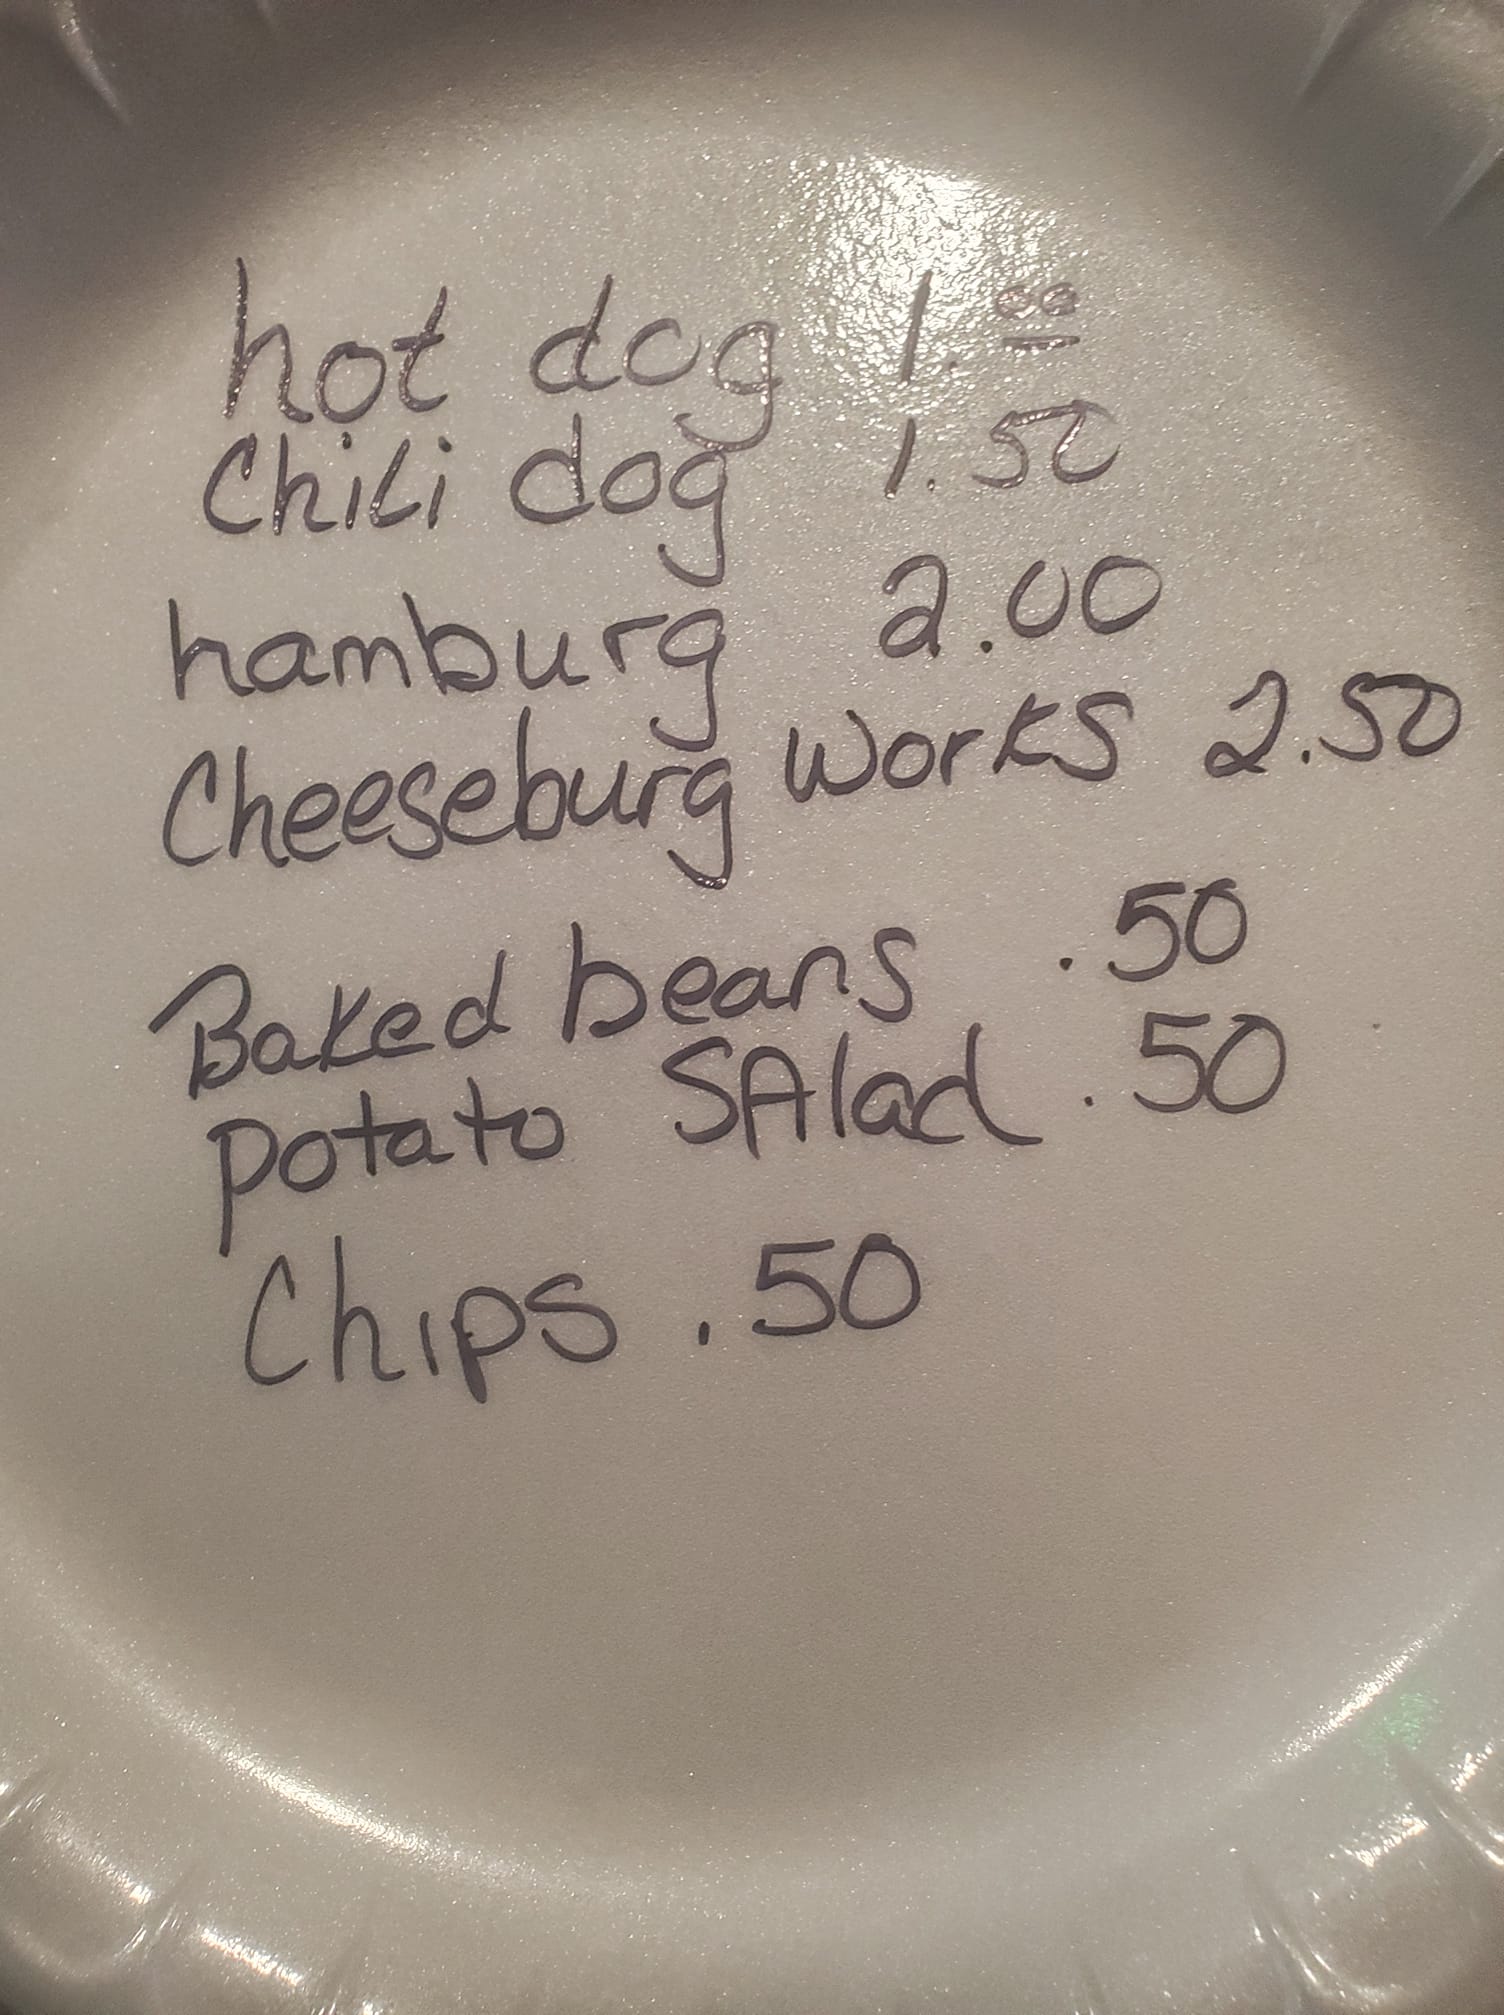 hot dog 1.00
Chili dog 1.50
hamburg 2.00
Cheeseburg works 2.50
Baked beans .50
potato SAlad .50
Chips .50